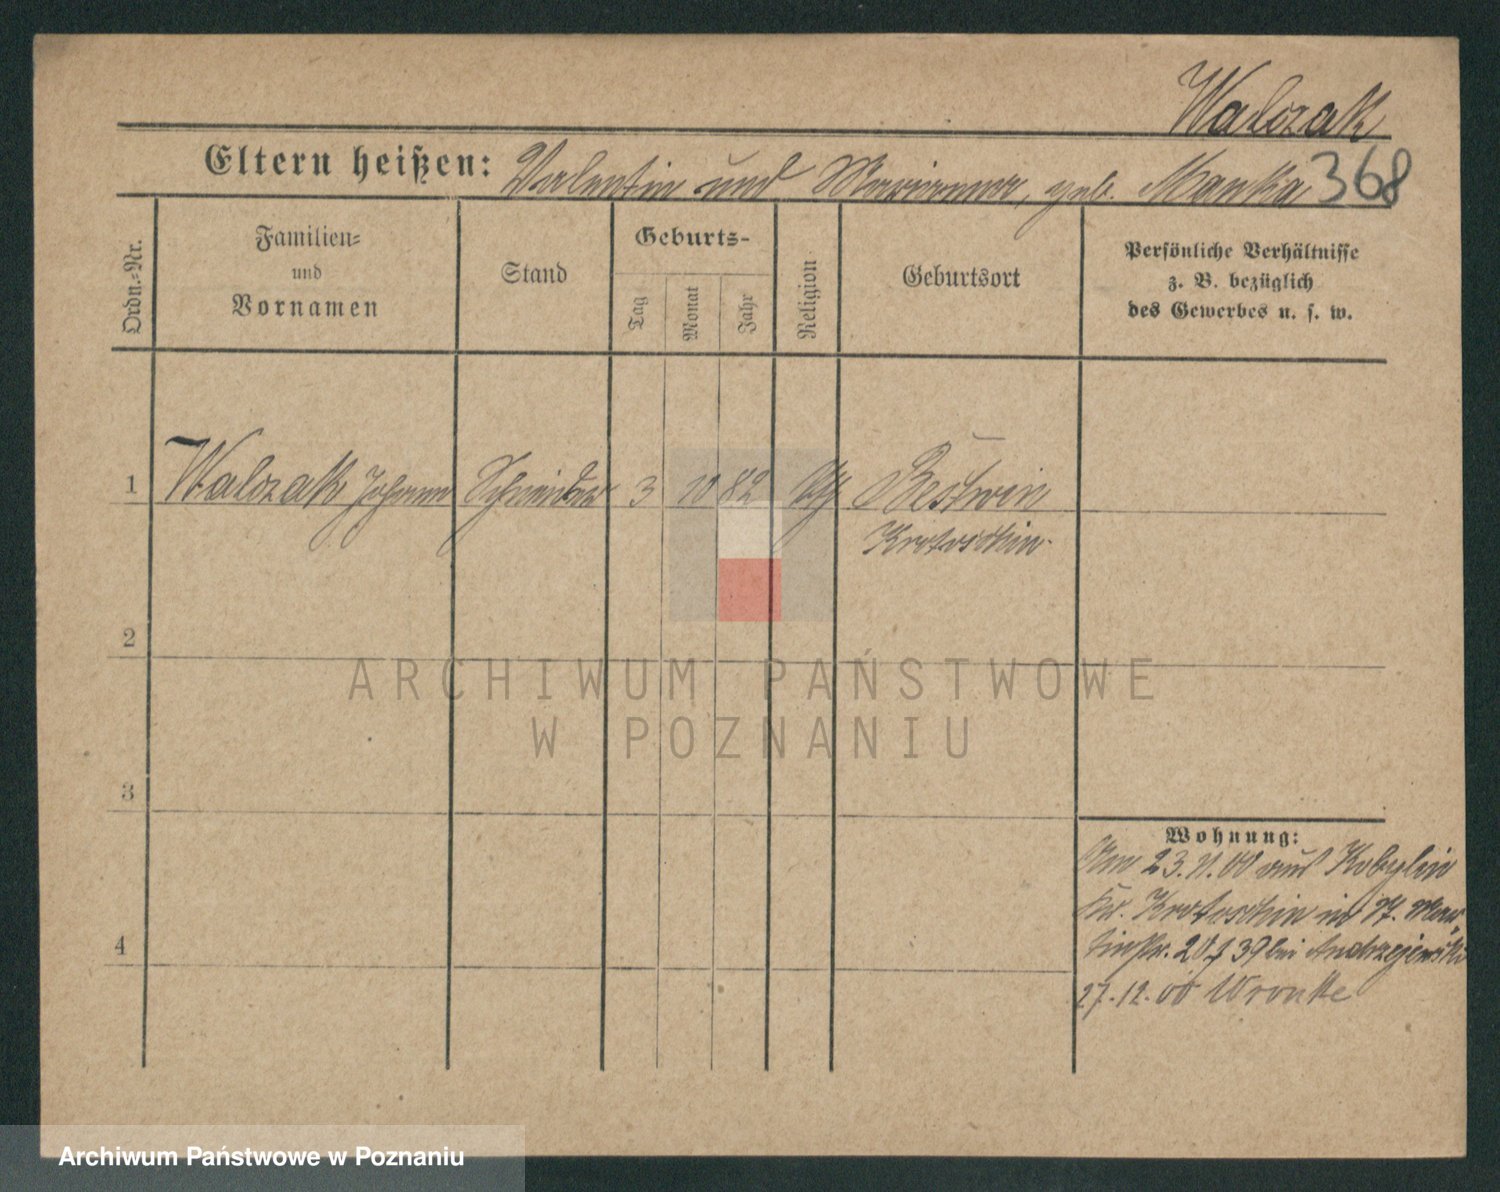 Walczak
Eltern heißen: Valentin und Marianna, geb. Manka 368
Ordn.-Nr.
Familien-
und
Vornamen
Stand
Geburts-
Tag
Monat
Jahr
Religion
Geburtsort
Persönliche Verhältnisse
z. B. bezüglich
des Gewerbes u. s. w.
1 Walczak Johann Schneider 3 10 82 Bestwin
Krotoschin
2
3
4
Wohnung:
Am 23.11.00 aus Kobylin
Kr. Krotoschin in
39 bei Andrzejewski
27.12.00 Wronke
ARCHIWUM PAŃSTWOWE
W POZNANIU
Archiwum Państwowe w Poznaniu